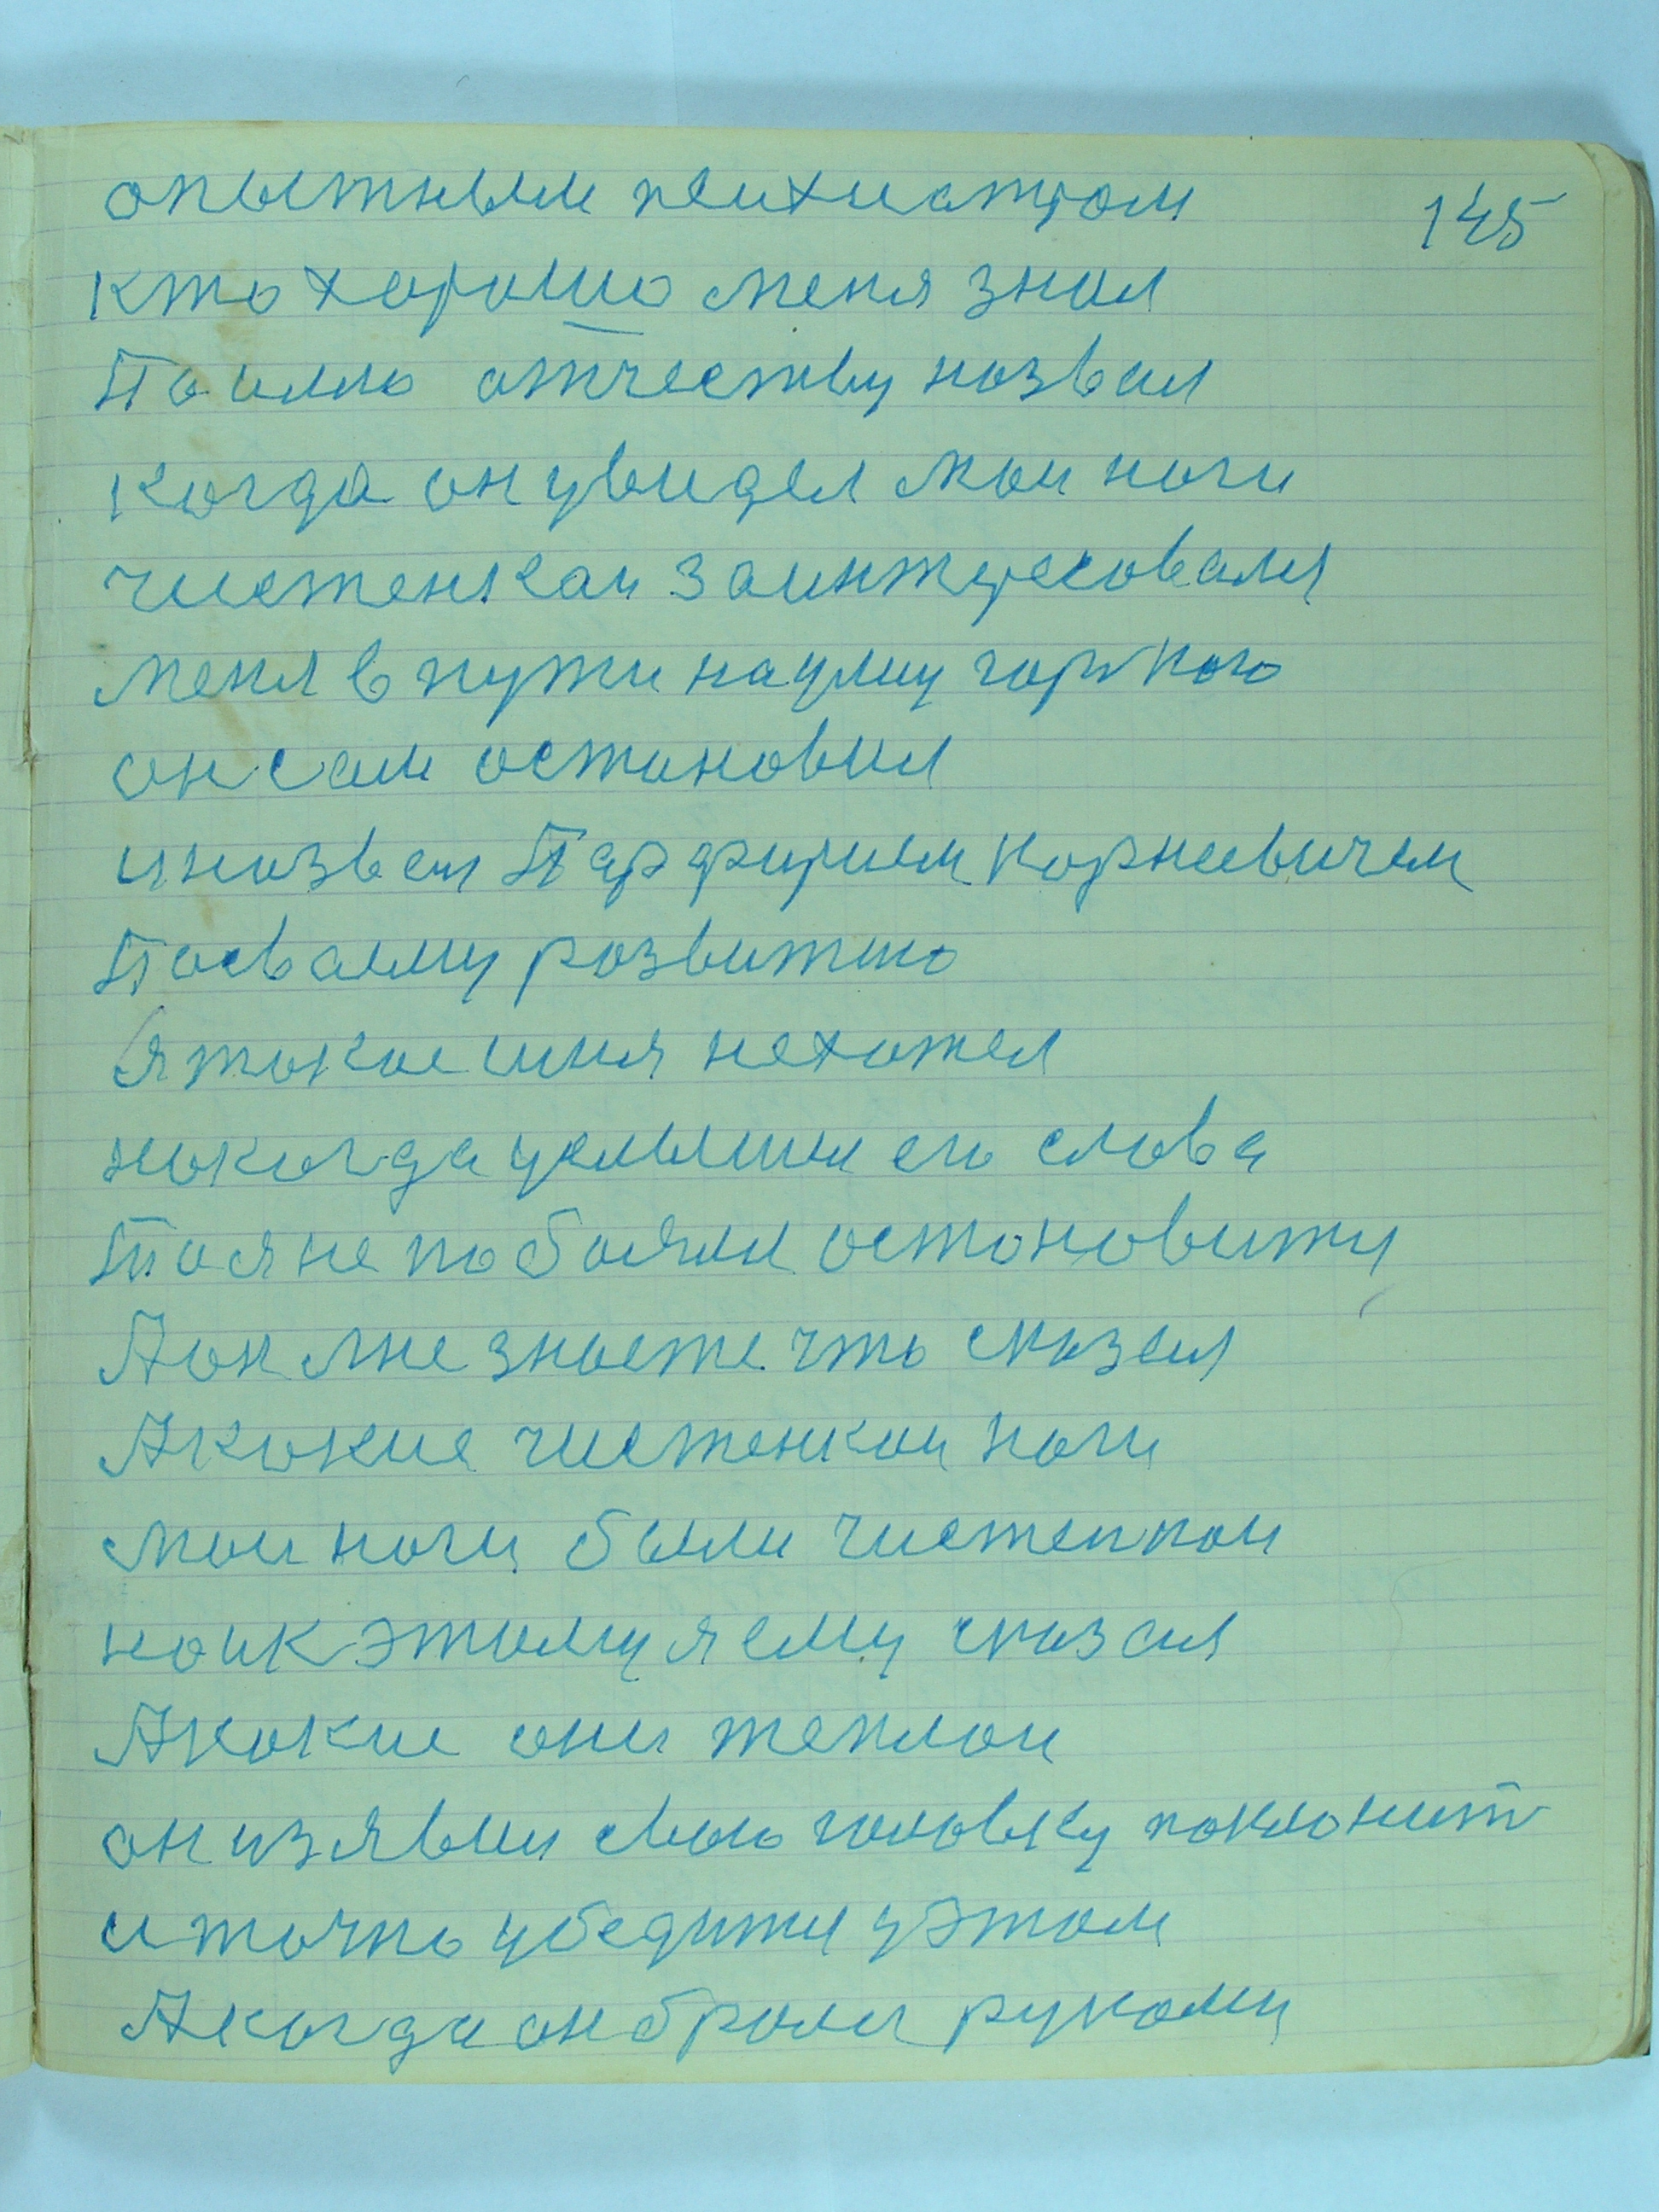 опытным психиатром
145
кто хорошо меня знал
По имю отчеству назвал
когда он увидел мои ноги
чистенкаи заинтресовался
меня в пути на улиц горкого
он сам остановил
и назвал Парфирием корнеевичем
Посваему развитию
я такое имя не хотел
но когда услышил его слова
То я не побоялся остоновится
А он мне знаете что сказал
А какие чистенкаи ноги
мои ноги были чистенкаи
но и к этому я ему сказал
А какие они теплаи
он изявил свою головку поклонит
и точно убедится у этом
А когда он брался руками